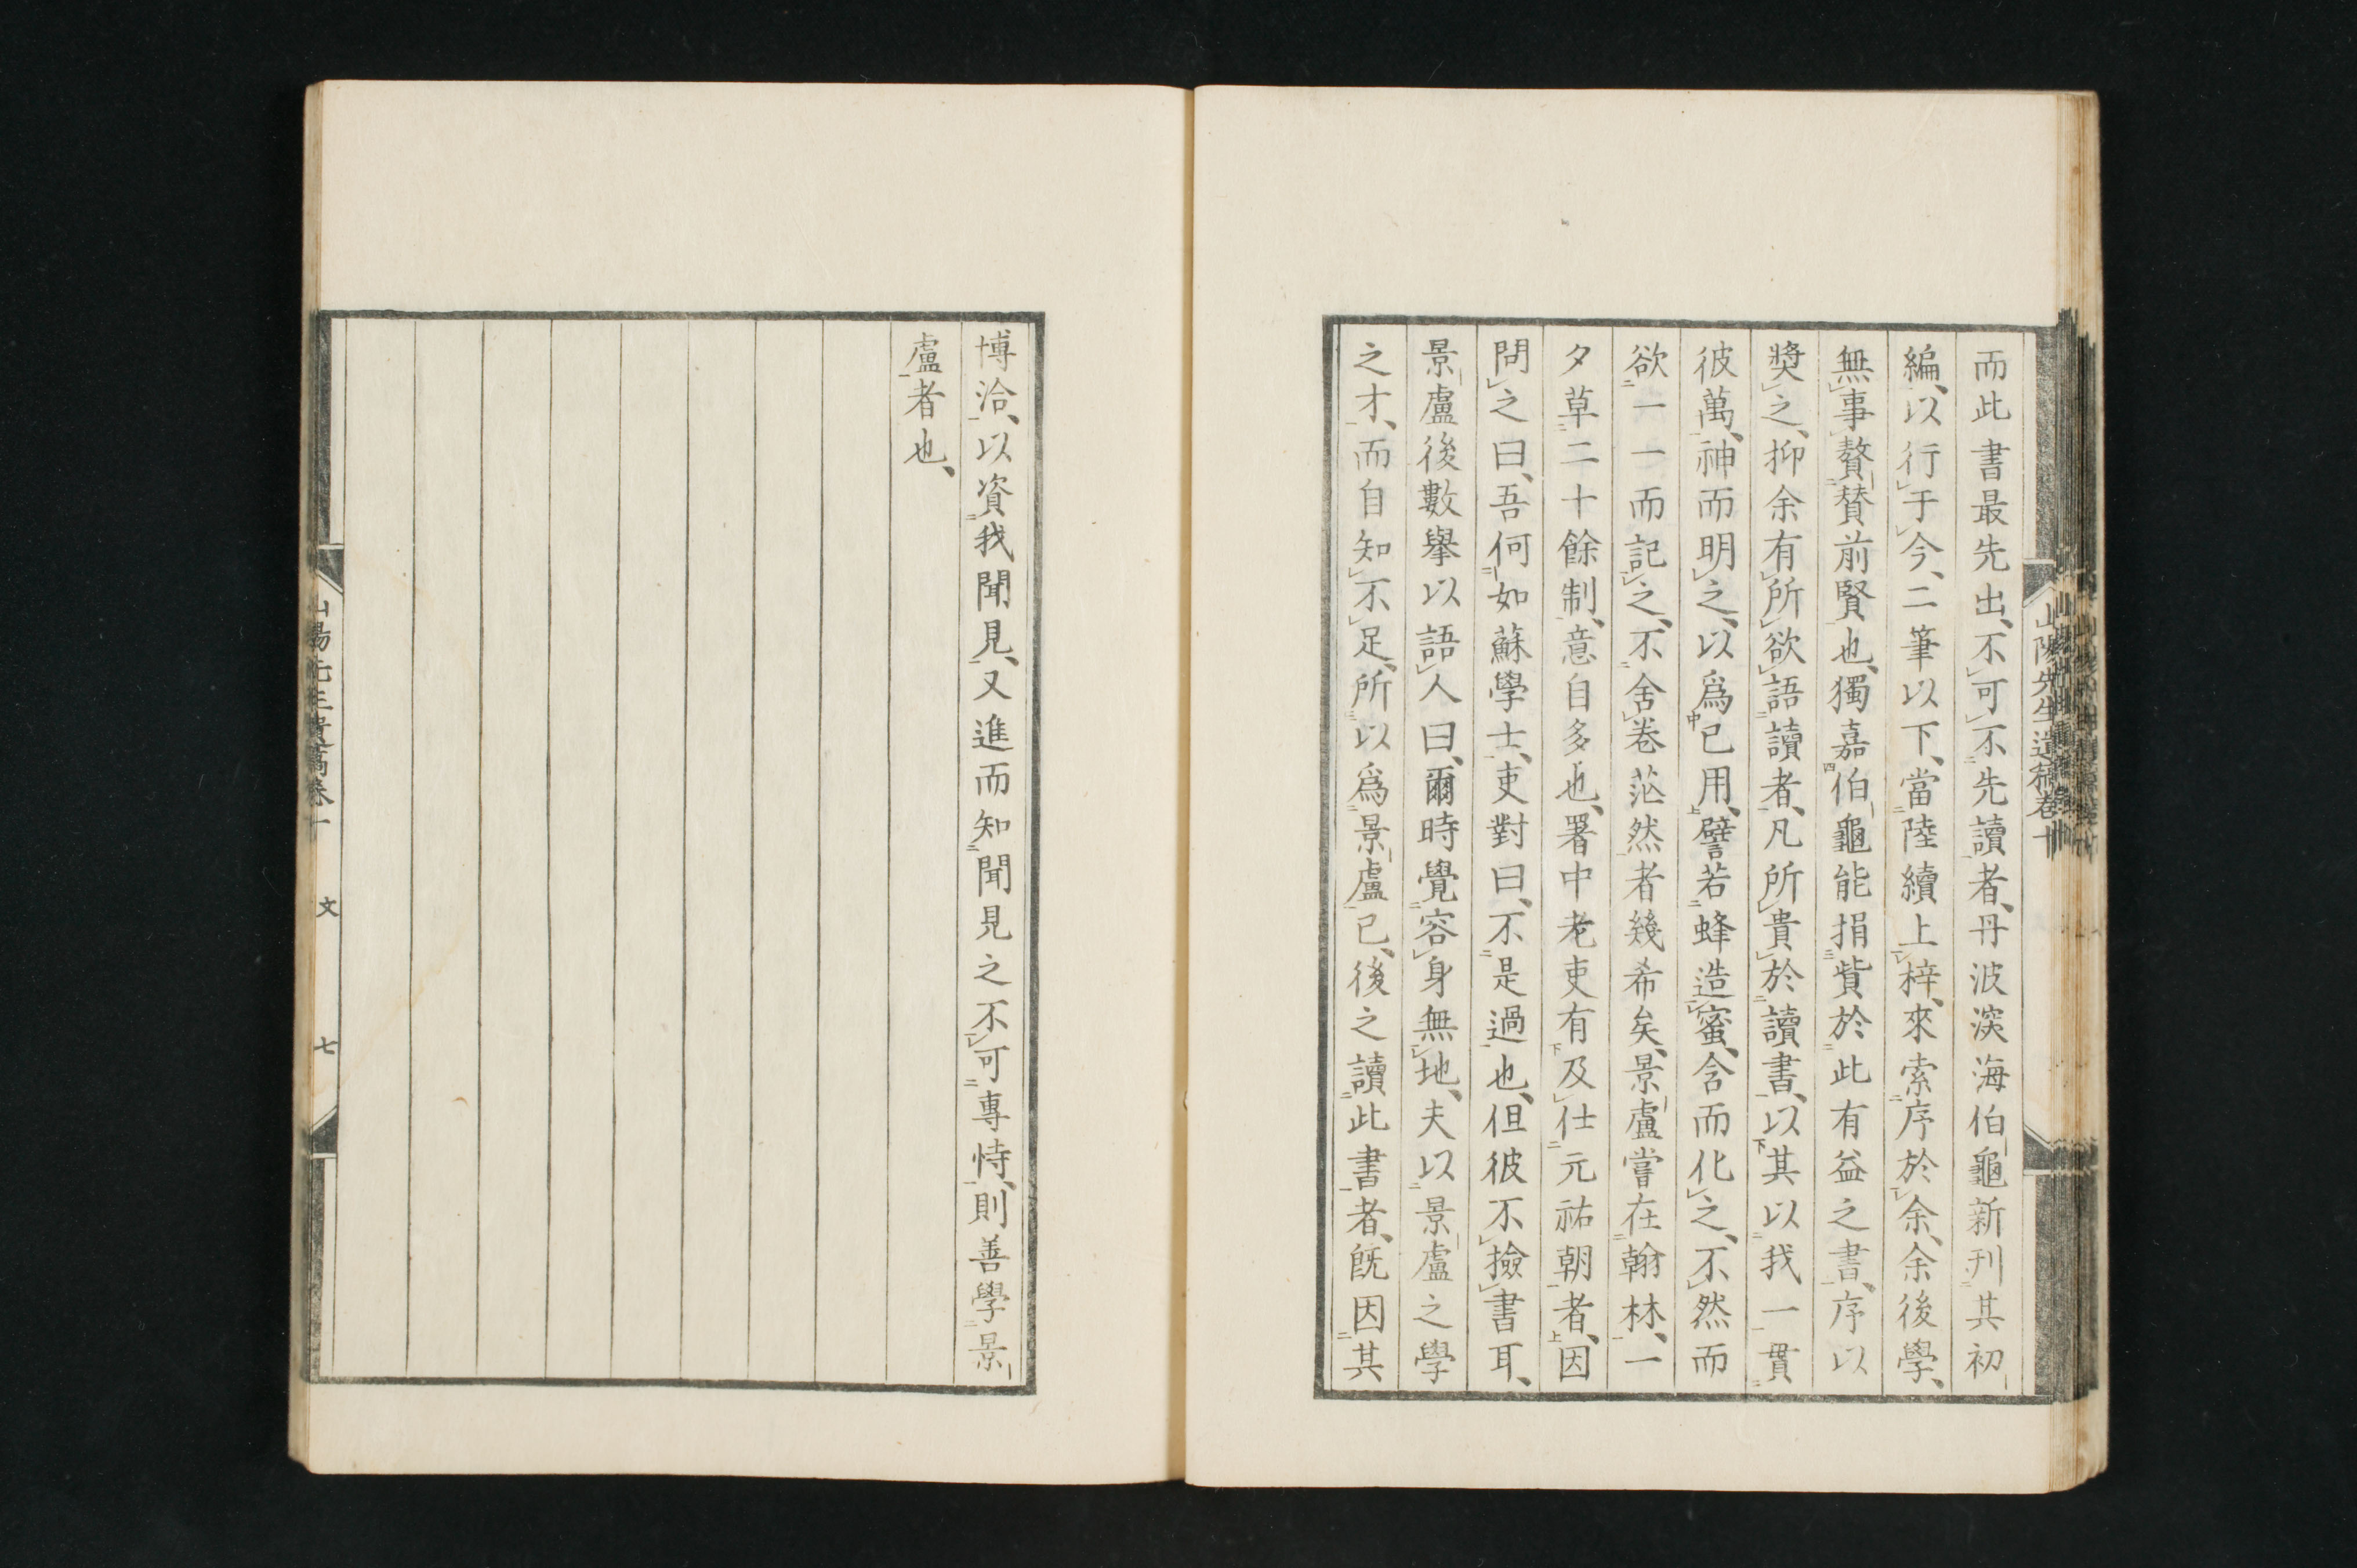 山陽先生遺稿卷十
而此書最先出、不可不先讀者、丹波淡海伯龜新刊其初
編、以行于今、二筆以下、當陸續上梓、來索序於余、余後學、
無事贅賛前賢也、獨嘉伯龜能捐貲於此有益之書、序以
奬之、抑余有所欲語讀者、凡所貴於讀書、以其以我一貫
彼萬、神而明之、以爲己用、譬若蜂造蜜、含而化之、不然而
欲一一而記之、不舍卷茫然者幾希矣、景盧嘗在翰林、一
夕草二十餘制、意自多也、署中老吏有及仕元祐朝者、因
問之曰、吾何如蘇學士、吏對曰、不是過也、但彼不撿書耳、
景盧後數擧以語人曰、爾時覺容身無地、夫以景盧之學
之才、而自知不足、所以爲景盧已、後之讀此書者、旣因其
博洽、以資我聞見、又進而知聞見之不可專恃、則善學景
盧者也、
山陽先生遺稿卷十 文 七